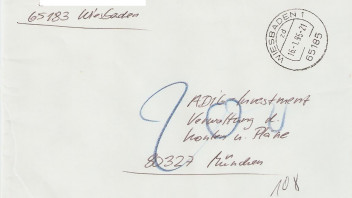 65183 Wiesbaden
WIESBADEN 1
zd
16.1.95-21
65185
ADIG Investment
Verwaltung d.
Konten u. Pläne
80327 München
108